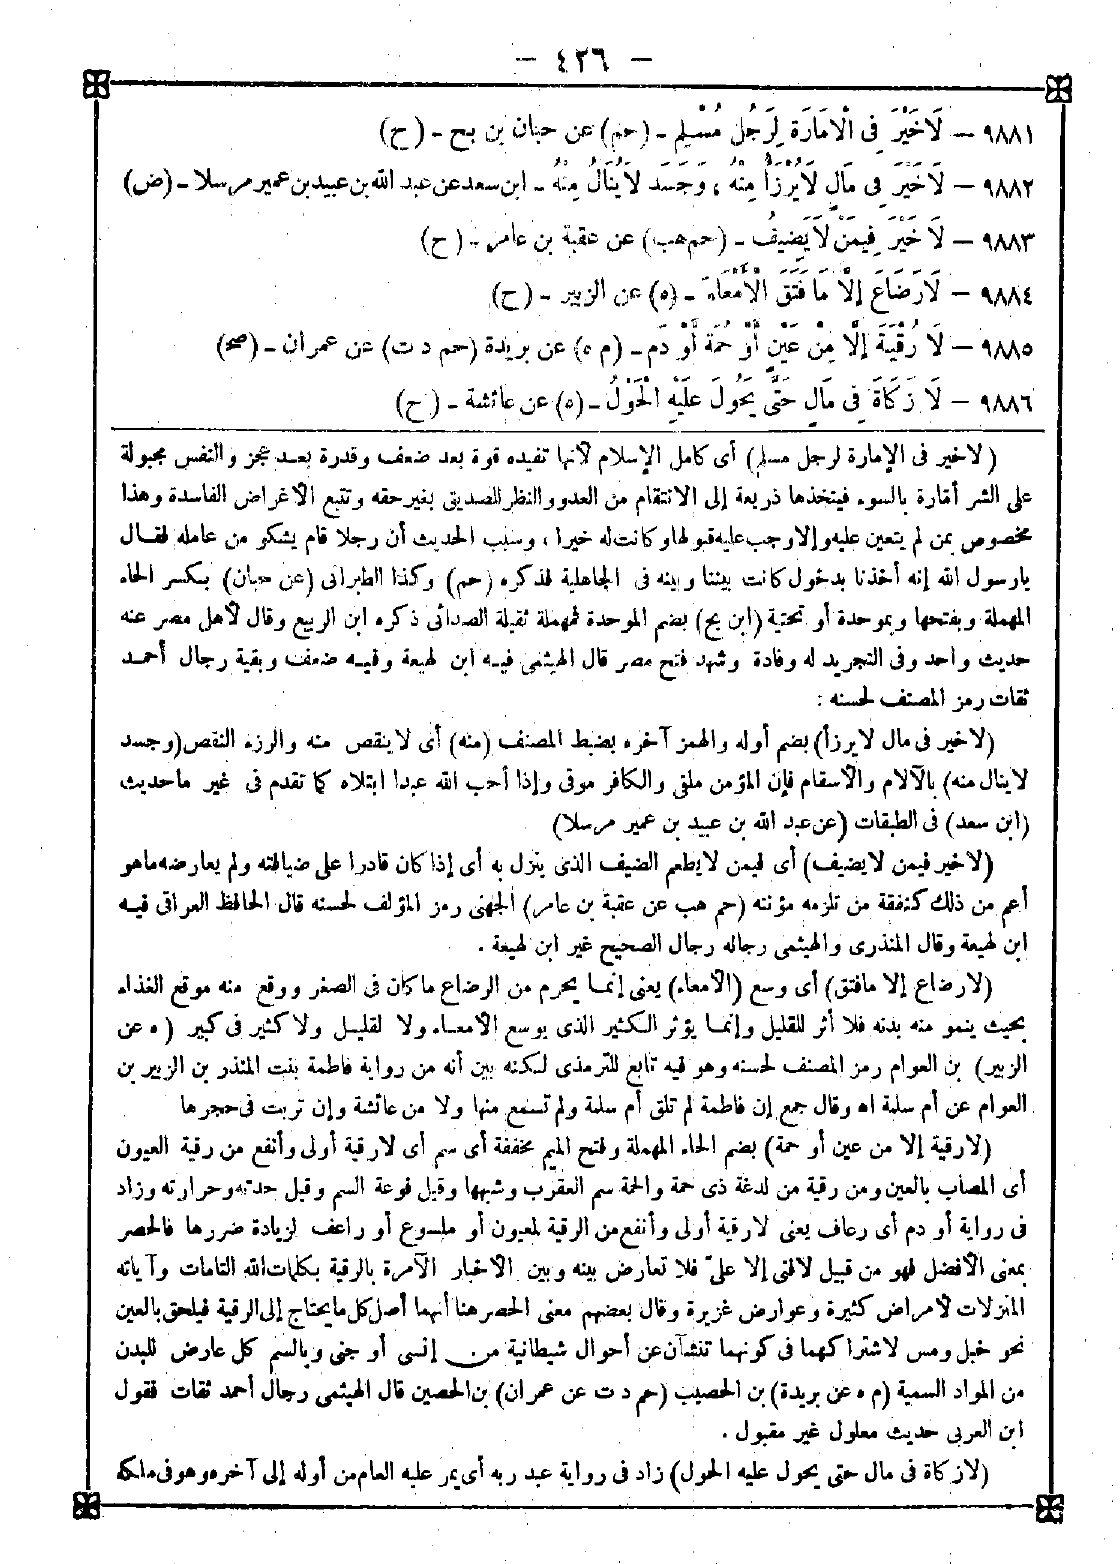 — ٤٢٦ —
٩٨٨١ — لَا خَيْرَ فِى الْامَارَةِ لِرَجُلٍ مُسْلِمٍ - (حم) عن حبان بن بح - (ح)
٩٨٨٢ — لَا خَيْرَ فِى مَالٍ لَا يُرْزَأُ مِنْهُ ، وَجَسَدٍ لَا يُنَالُ مِنْهُ - ابن سعد عن عبد الله بن عبيد بن عمير مرسلا - (ض)
٩٨٨٣ — لَا خَيْرَ فِيمَنْ لَا يَضِيفُ - (حم هب) عن عقبة بن عامر - (ح)
٩٨٨٤ — لَا رَضَاعَ إِلَّا مَا فَتَقَ الْأَمْعَاءَ - (ه) عن الزبير - (ح)
٩٨٨٥ — لَا رُقْيَةَ إِلَّا مِنْ عَيْنٍ أَوْ حُمَةٍ أَوْ دَمٍ - (م ه) عن بريدة (حم د ت) عن عمران - (صح)
٩٨٨٦ — لَا زَكَاةَ فِى مَالٍ حَتَّى يَحُولَ عَلَيْهِ الْحَوْلُ - (ه) عن عائشة - (ح)
(لا خير فى الإمارة لرجل مسلم) أى كامل الإسلام لأنها تفيده قوة بعد ضعف وقدرة بعـد عجز والنفس مجبولة
على الشر أمارة بالسوء فيتخذها ذريعة إلى الانتقام من العدو والنظر للصديق بغير حقه وتتبع الأغراض الفاسدة وهذا
مخصوص بمن لم يتعين عليه وإلا وجب عليه قبولها وكانت له خيرا ، وسبب الحديث أن رجلا قام يشكو من عامله فقـال
يارسول الله إنه أخذنا بدخول كانت بيننا وبينه فى الجاهلية فذكره (حم) وكذا الطبرانى (عن حبان) بـكسر الحاء
المهملة وبفتحها وبموحدة أو تحتية (ابن بح) بضم الموحدة فمهملة ثقيلة الصدائى ذكره ابن الربيع وقال لأهل مصر عنه
حديث واحد وفى التجريد له وفادة وشهد فتح مصر قال الهيثمى فيـه ابن لهيعة وفيـه ضعف وبقية رجال أحمـد
ثقات رمز المصنف لحسنه :
(لا خير فى مال لا يرزأ) بضم أوله والهمز آخره بضبط المصنف (منه) أى لا ينقص منه والرزء النقص (وجسد
لا ينال منه) بالآلام والأسقام فإن المؤمن ملقى والكافر موقى وإذا أحب الله عبدا ابتلاه كما تقدم فى غير ما حديث
(ابن سعد) فى الطبقات (عن عبد الله بن عبيد بن عمير مرسلا)
(لا خير فيمن لا يضيف) أى فيمن لا يطعم الضيف الذى ينزل به أى إذا كان قادرا على ضيافته ولم يعارضه ما هو
أهم من ذلك كنفقة من تلزمه مؤنته (حم هب عن عقبة بن عامر) الجهنى رمز المؤلف لحسنه قال الحافظ العراقى فيـه
ابن لهيعة وقال المنذرى والهيثمى رجاله رجال الصحيح غير ابن لهيعة .
(لا رضاع إلا ما فتق) أى وسع (الأمعاء) يعنى إنمـا يحرم من الرضاع ما كان فى الصغر ووقع منه موقع الغذاء
بحيث ينمو منه بدنه فلا أثر للقليل وإنمـا يؤثر الـكثير الذى يوسع الأمعـاء ولا لقليـل ولا كثير فى كبير (ه عن
الزبير) بن العوام رمز المصنف لحسنه وهو فيه تابع للترمذى لـكنه بين أنه من رواية فاطمة بنت المنذر بن الزبير بن
العوام عن أم سلمة اه وقال جمع إن فاطمة لم تلق أم سلمة ولم تسمع منها ولا من عائشة وإن تربت فى حجرها
(لا رقية إلا من عين أو حمة) بضم الحاء المهملة وفتح الميم مخففة أى سم أى لا رقية أولى وأنفع من رقية العيون
أى المصاب بالعين ومن رقية من لدغة ذى حمة والحمة سم العقرب وشبهها وقيل فوعة السم وقيل حدته وحرارته وزاد
فى رواية أو دم أى رعاف يعنى لا رقية أولى وأنفع من الرقية لمعيون أو ملسوع أو راعف لزيادة ضررها فالحصر
بمعنى الأفضل فهو من قبيل لا فتى إلا علىّ فلا تعارض بينه وبين الأخبار الآمرة بالرقية بكلمات الله التامات وآياته
المنزلات لأمراض كثيرة وعوارض غزيرة وقال بعضهم معنى الحصر هنا أنهما أصل كل ما يحتاج إلى الرقية فيلحق بالعين
نحو خبل ومس لاشتراكهما فى كونهما تنشآن عن أحوال شيطانية من إنسى أو جنى وبالسم كل عارض للبدن
من المواد السمية (م ه عن بريدة) بن الحصيب (حم د ت عن عمران) بن الحصين قال الهيثمى رجال أحمد ثقات فقول
ابن العربى حديث معلول غير مقبول .
(لا زكاة فى مال حتى يحول عليه الحول) زاد فى رواية عبد ربه أى يمر عليه العام من أوله إلى آخره وهو فى ملكه